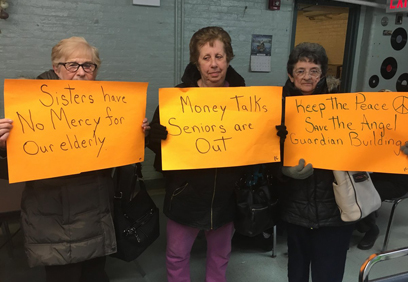 Sisters have
No Mercy for
Our elderly
Money Talks
Seniors are
Out
Keep the Peace
Save the Angel
Guardian Building